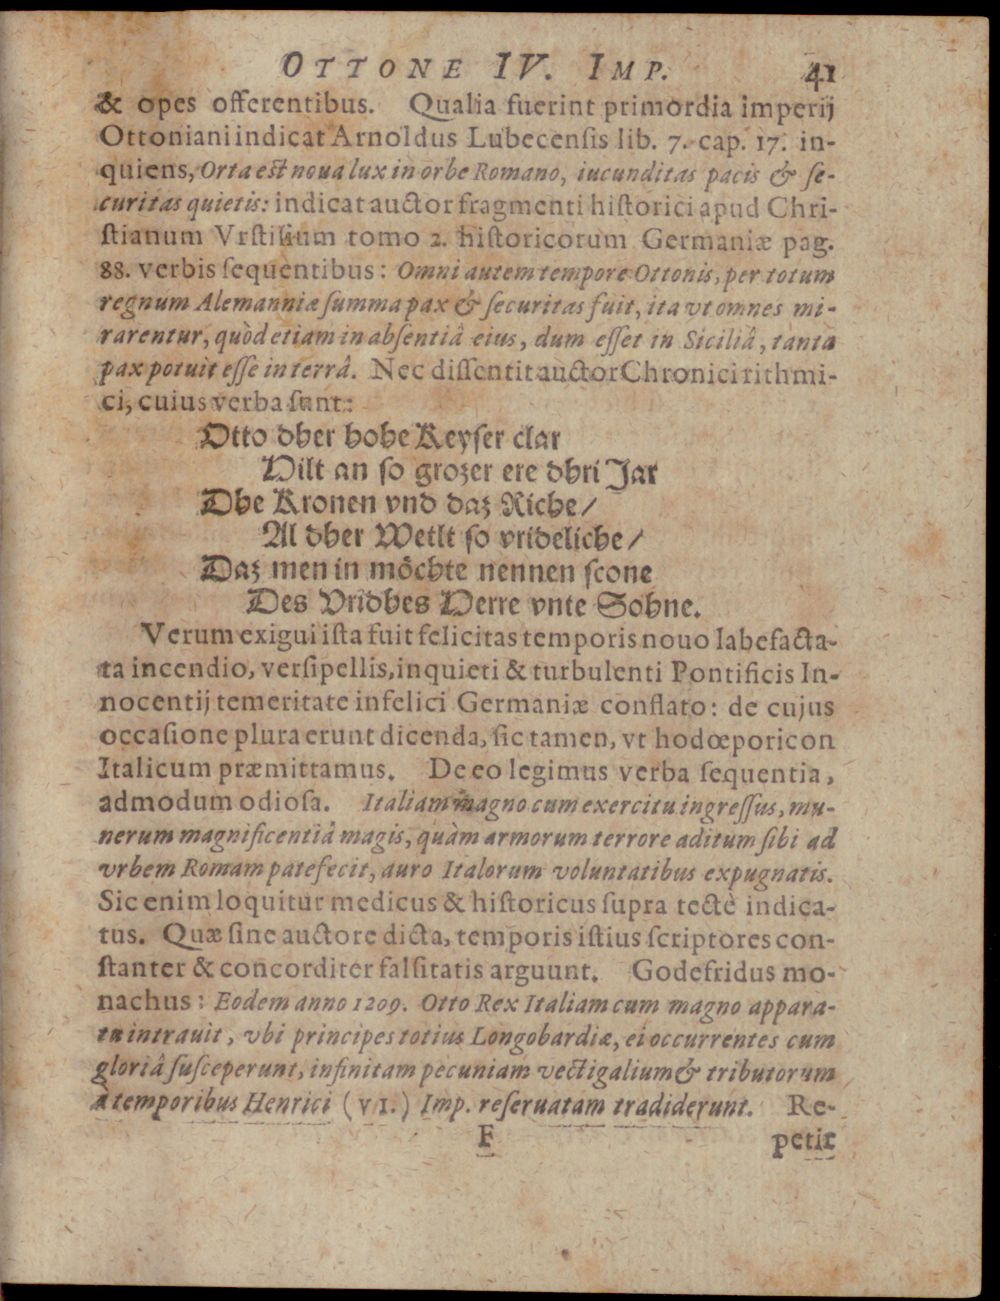 OTTONE IV. IMP. 41
& opes offerentibus. Qualia fuerint primordia imperij
Ottoniani indicat Arnoldus Lubecensis lib. 7. cap. 17. in-
quiens, Orta est noua lux in orbe Romano, iucunditas pacis & se-
curitas quietis: indicat auctor fragmenti historici apud Chri-
stianum Vrstisium tomo 2. historicorum Germaniæ pag.
88. verbis sequentibus: Omni autem tempore Ottonis, per totum
regnum Alemanniæ summa pax & securitas fuit, ita vt omnes mi-
rarentur, quòd etiam in absentiâ eius, dum esset in Siciliâ, tanta
pax potuit esse in terrâ. Nec dissentit auctor Chronici rithmi-
ci, cuius verba sunt:
Otto dher hohe Keyser clar
Hilt an so grozer ere dhri Jar
Dhe Kronen vnd daz Riche/
Al dher Wetlt so vrideliche/
Daz men in möchte nennen scone
Des Vridhes Herre vnte Sohne.
Verum exigui ista fuit felicitas temporis nouo labefacta-
ta incendio, versipellis, inquieti & turbulenti Pontificis In-
nocentij temeritate infelici Germaniæ conflato: de cujus
occasione plura erunt dicenda, sic tamen, vt hodœporicon
Italicum præmittamus. De eo legimus verba sequentia,
admodum odiosa. Italiam magno cum exercitu ingressus, mu-
nerum magnificentiâ magis, quàm armorum terrore aditum sibi ad
vrbem Romam patefecit, auro Italorum voluntatibus expugnatis.
Sic enim loquitur medicus & historicus supra tectè indica-
tus. Quæ sine auctore dicta, temporis istius scriptores con-
stanter & concorditer falsitatis arguunt. Godefridus mo-
nachus: Eodem anno 1209. Otto Rex Italiam cum magno appara-
tu intrauit, vbi principes totius Longobardiæ, ei occurrentes cum
gloriâ susceperunt, infinitam pecuniam vectigalium & tributorum
à temporibus Henrici (VI.) Imp. reseruatam tradiderunt. Re-
F petit